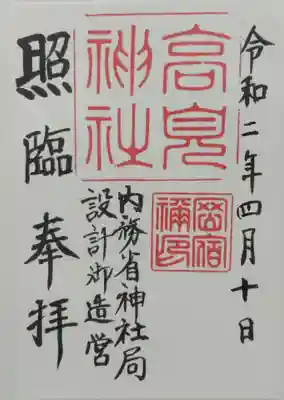 令和二年四月十日
高見
神社
宿
禰印
内務省神社局
設計御造営
照臨奉拝